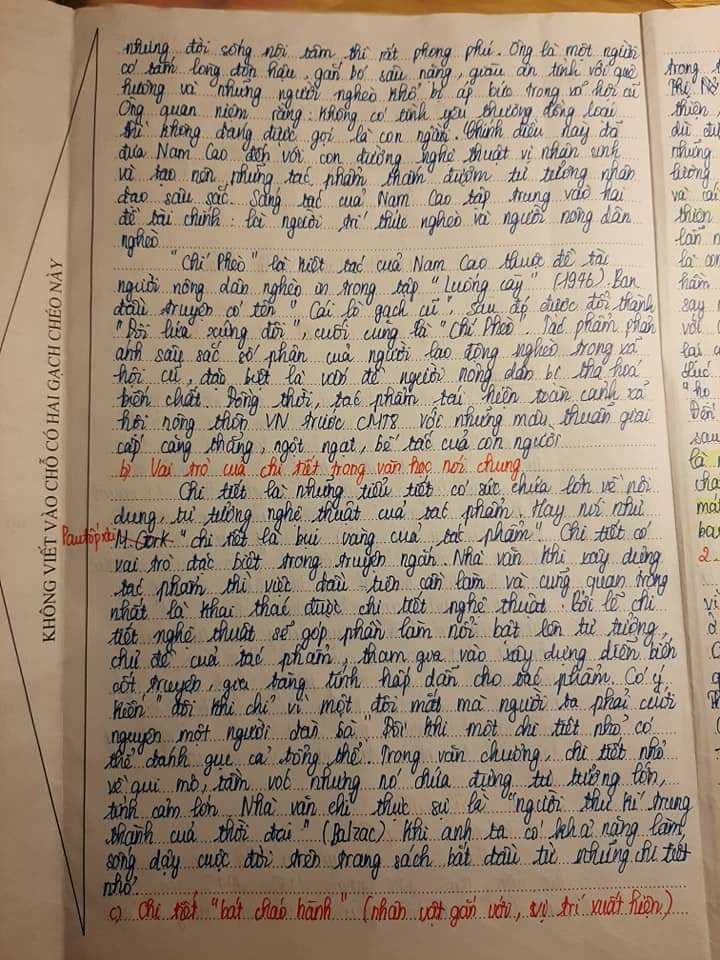 nhưng đời sống nội tâm thì rất phong phú. Ông là một người
có tấm lòng đôn hậu, gắn bó sâu nặng, giàu ân tình với quê
hương và những người nghèo khổ bị áp bức trong xã hội cũ
Ông quan niệm rằng: không có tình yêu thương đồng loại
thì không đáng được gọi là con người. Chính điều này đã
đưa Nam Cao đến với con đường nghệ thuật vị nhân sinh
và tạo nên những tác phẩm thấm đượm tư tưởng nhân
đạo sâu sắc. Sáng tác của Nam Cao tập trung vào hai
đề tài chính: là người trí thức nghèo và người nông dân
nghèo
"Chí Phèo" là kiệt tác của Nam Cao thuộc đề tài
người nông dân nghèo in trong tập "Luống cày" (1946). Ban
đầu truyện có tên "Cái lò gạch cũ", sau đó được đổi thành
"Đôi lứa xứng đôi", cuối cùng là "Chí Phèo. Tác phẩm phản
ánh sâu sắc số phận của người lao động nghèo trong xã
hội cũ, đặc biệt là vấn đề người nông dân bị tha hoá
biến chất. Đồng thời, tác phẩm tái hiện toàn cảnh xã
hội nông thôn VN trước CMT8 với những mâu thuẫn giai
cấp căng thẳng, ngột ngạt, bế tắc của con người
b) Vai trò của chi tiết trong văn học nói chung
Chi tiết là những tiểu tiết có sức chứa lớn về nội
dung, tư tưởng nghệ thuật của tác phẩm. Hay nói như
Pautốpxki M. Gork "chi tiết là bụi vàng của tác phẩm". Chi tiết có
vai trò đặc biệt trong truyện ngắn. Nhà văn khi xây dựng
tác phẩm thì việc đầu tiên cần làm và cũng quan trọng
nhất là khai thác được chi tiết nghệ thuật. Bởi lẽ chi
tiết nghệ thuật sẽ góp phần làm nổi bật lên tư tưởng,
chủ đề của tác phẩm, tham gia vào xây dựng diễn biến
cốt truyện, gia tăng tính hấp dẫn cho tác phẩm. Có ý
kiến "đôi khi chỉ vì một đôi mắt mà người ta phải cưới
nguyên một người đàn bà". Đôi khi một chi tiết nhỏ có
thể đánh gục cả tổng thể. Trong văn chương, chi tiết nhỏ
về qui mô, tầm vóc nhưng nó chứa đựng tư tưởng lớn,
tình cảm lớn. Nhà văn chỉ thực sự là "người thư kí trung
thành của thời đại" (Balzac) khi anh ta có khả năng làm
sống dậy cuộc đời trên trang sách bắt đầu từ những chi tiết
nhỏ
c) Chi tiết "bát cháo hành" (nhân vật gắn với, vị trí xuất hiện)
KHÔNG VIẾT VÀO CHỖ CÓ HAI GẠCH CHÉO NÀY